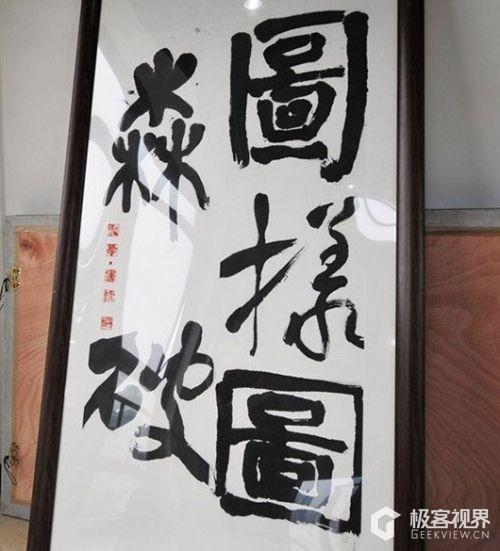 圖樣圖
森破
极客视界
GEEKVIEW.CN